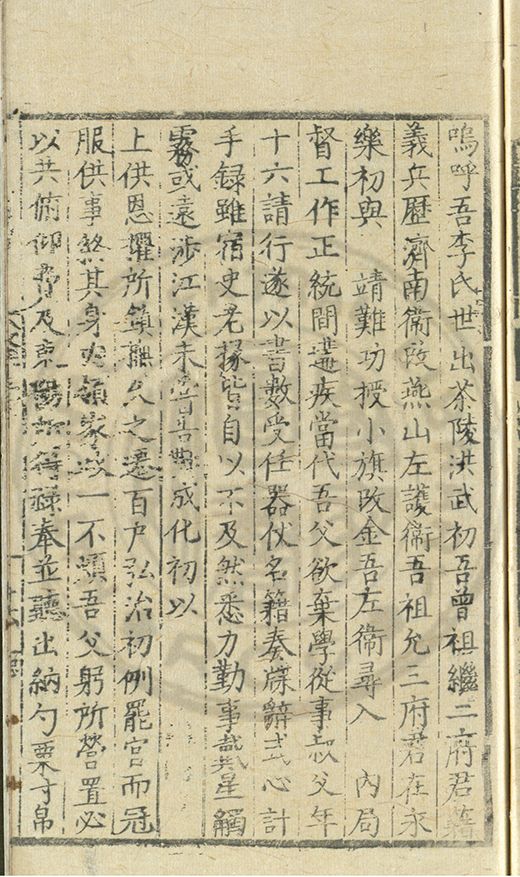 嗚呼吾李氏世出茶陵洪武初吾曾祖繼二府君籍
義兵歷濟南衛改燕山左護衛吾祖允三府君在永
樂初與　靖難功授小旗改金吾左衛尋入　內局
督工作正統間遘疾當代吾父欲棄學從事叔父年
十六請行遂以書數受任器仗名籍奏牒辭式心計
手録雖宿史老掾皆自以不及然悉力勤事戴星觸
霧或遠涉江漢未嘗告勞成化初以
上供恩擢所鎮撫久之遷百户弘治初例罷官而冠
服供事然其身
以共俯仰費及
一不煩吾父躬所營置必
祿奉並聽出納勺粟寸帛